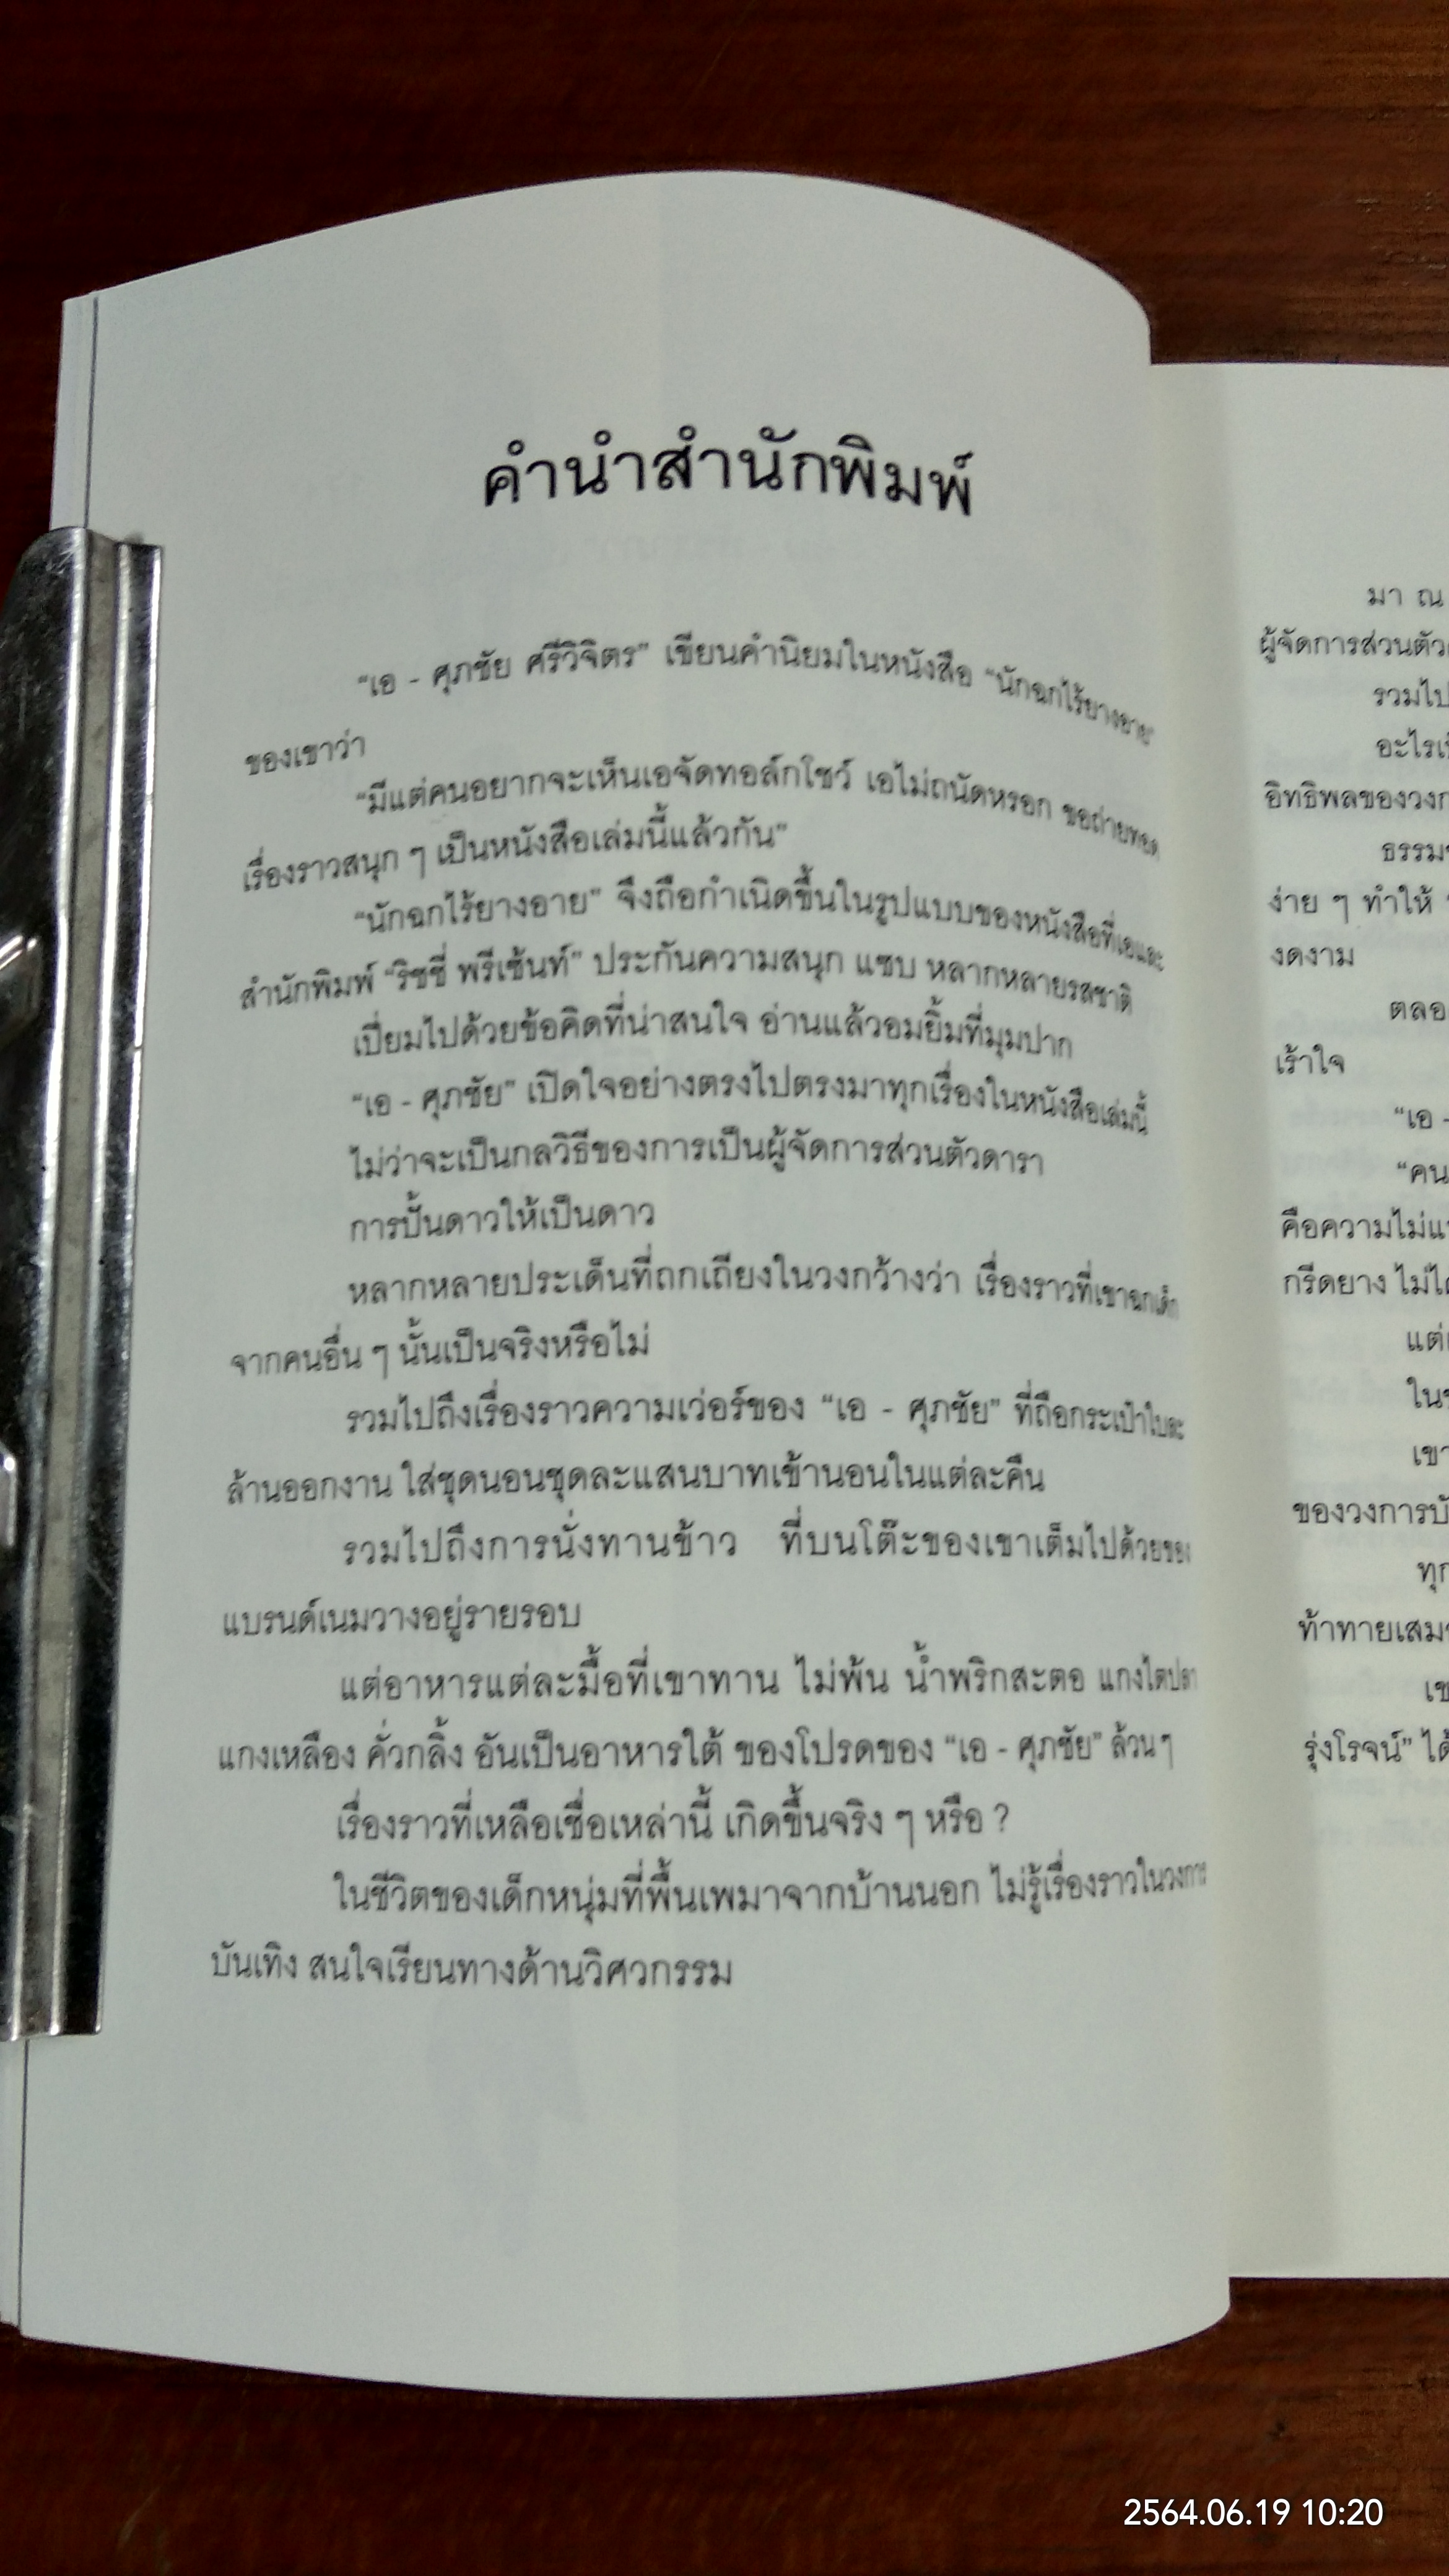 คำนำสำนักพิมพ์
“เอ - ศุภชัย ศรีวิจิตร” เขียนคำนิยมในหนังสือ “นักฉกไร้ยางอาย”
ของเขาว่า
“มีแต่คนอยากจะเห็นเอจัดทอล์กโชว์ เอไม่ถนัดหรอก ขอถ่ายทอด
เรื่องราวสนุก ๆ เป็นหนังสือเล่มนี้แล้วกัน”
“นักฉกไร้ยางอาย” จึงถือกำเนิดขึ้นในรูปแบบของหนังสือที่เอและ
สำนักพิมพ์ “ริชชี่ พรีเซ้นท์” ประกันความสนุก แซบ หลากหลายรสชาติ
เปี่ยมไปด้วยข้อคิดที่น่าสนใจ อ่านแล้วอมยิ้มที่มุมปาก
“เอ - ศุภชัย” เปิดใจอย่างตรงไปตรงมาทุกเรื่องในหนังสือเล่มนี้
ไม่ว่าจะเป็นกลวิธีของการเป็นผู้จัดการส่วนตัวดารา
การปั้นดาวให้เป็นดาว
หลากหลายประเด็นที่ถกเถียงในวงกว้างว่า เรื่องราวที่เขาฉกเด็ก
จากคนอื่น ๆ นั้นเป็นจริงหรือไม่
รวมไปถึงเรื่องราวความเว่อร์ของ “เอ - ศุภชัย” ที่ถือกระเป๋าใบละ
ล้านออกงาน ใส่ชุดนอนชุดละแสนบาทเข้านอนในแต่ละคืน
รวมไปถึงการนั่งทานข้าว ที่บนโต๊ะของเขาเต็มไปด้วยของ
แบรนด์เนมวางอยู่รายรอบ
แต่อาหารแต่ละมื้อที่เขาทาน ไม่พ้น น้ำพริกสะตอ แกงไตปลา
แกงเหลือง คั่วกลิ้ง อันเป็นอาหารใต้ ของโปรดของ “เอ - ศุภชัย” ล้วน ๆ
เรื่องราวที่เหลือเชื่อเหล่านี้ เกิดขึ้นจริง ๆ หรือ ?
ในชีวิตของเด็กหนุ่มที่พื้นเพมาจากบ้านนอก ไม่รู้เรื่องราวในวงการ
บันเทิง สนใจเรียนทางด้านวิศวกรรม
มา ณ
ผู้จัดการส่วนตัว
รวมไป
อะไร
อิทธิพลของวง
ธรรม
ง่าย ๆ ทำให้
งดงาม
ตลอ
เร้าใจ
“เอ -
“คน
คือความไม่
กรีดยาง ไม่ได้
แต่
ใน
เขา
ของวงการ
ทุก
ท้าทายเสม
เข
รุ่งโรจน์” ได้
2564.06.19 10:20